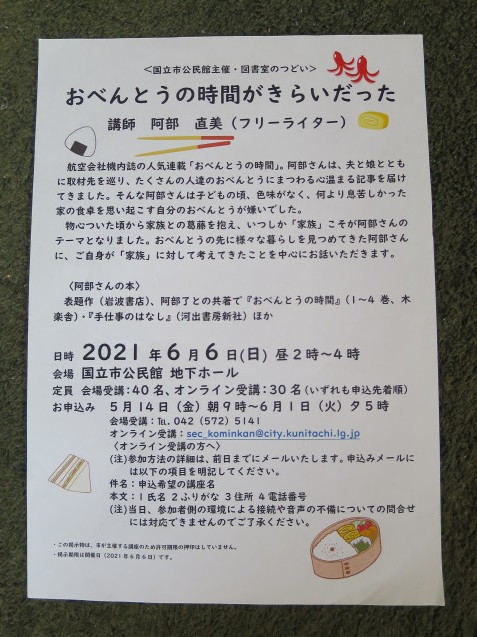 ＜国立市公民館主催・図書室のつどい＞
おべんとうの時間がきらいだった
講師　阿部　直美（フリーライター）
航空会社機内誌の人気連載「おべんとうの時間」。阿部さんは、夫と娘ととも
に取材先を巡り、たくさんの人達のおべんとうにまつわる心温まる記事を届け
てきました。そんな阿部さんは子どもの頃、色味がなく、何より息苦しかった
家の食卓を思い起こす自分のおべんとうが嫌いでした。
物心ついた頃から家族との葛藤を抱え、いつしか「家族」こそが阿部さんの
テーマとなりました。おべんとうの先に様々な暮らしを見つめてきた阿部さん
に、ご自身が「家族」に対して考えてきたことを中心にお話いただきます。
〈阿部さんの本〉
表題作（岩波書店）、阿部了との共著で『おべんとうの時間』（1～4 巻、木
楽舎）・『手仕事のはなし』（河出書房新社）ほか
日時 2021 年 6 月 6 日(日) 昼 2 時～4 時
会場 国立市公民館 地下ホール
定員 会場受講：40 名、オンライン受講：30 名（いずれも申込先着順）
お申込み　5 月 14 日（金）朝 9 時～6 月 1 日（火）夕 5 時
会場受講：℡ 042（572）5141
オンライン受講：sec_kominkan@city.kunitachi.lg.jp
〈オンライン受講の方へ〉
(注)参加方法の詳細は、前日までにメールいたします。申込みメールに
は以下の項目を明記してください。
件名：申込希望の講座名
本文：1 氏名 2 ふりがな 3 住所 4 電話番号
(注)当日、参加者側の環境による接続や音声の不備についての問合せ
には対応できませんのでご了承ください。
・この掲示物は、市が主催する講座のため許可期限の押印はしていません。
・掲示期限は開催日（2021 年 6 月 6 日）です。